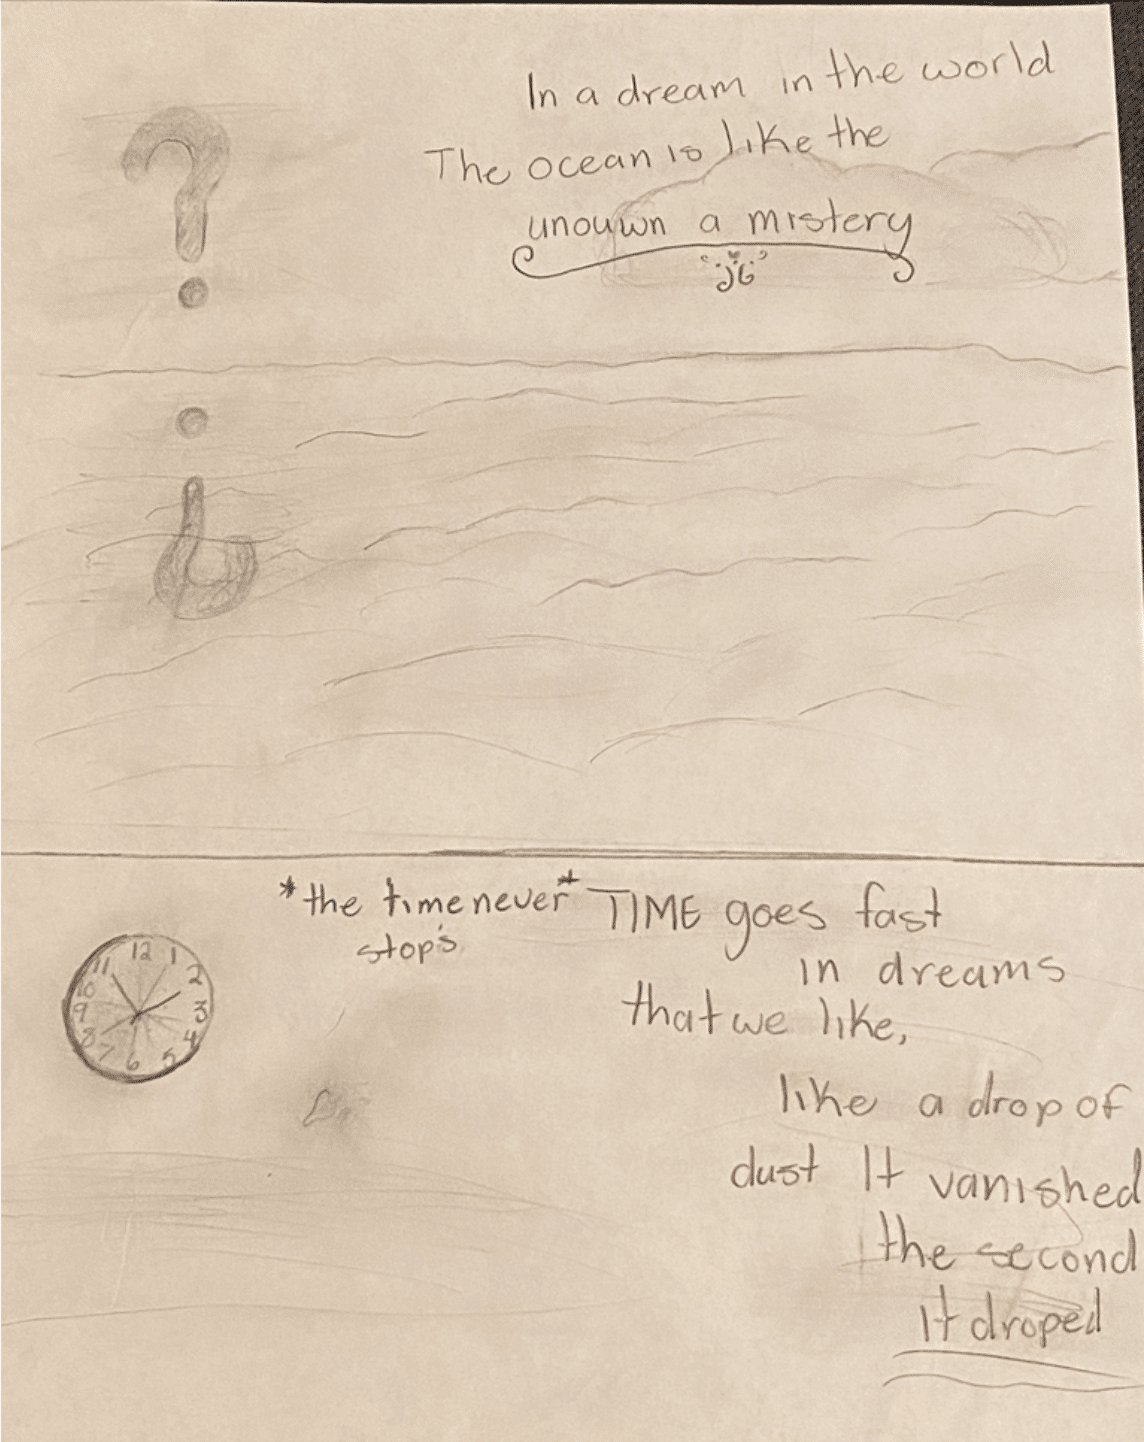 In a dream in the world
The ocean is like the
unouwn a mistery
?
¿
*the time never*
stop's
TIME goes fast
in dreams
that we like,
like a drop of
dust It vanished
the second
It droped
12
1
2
3
4
5
6
7
8
9
10
11